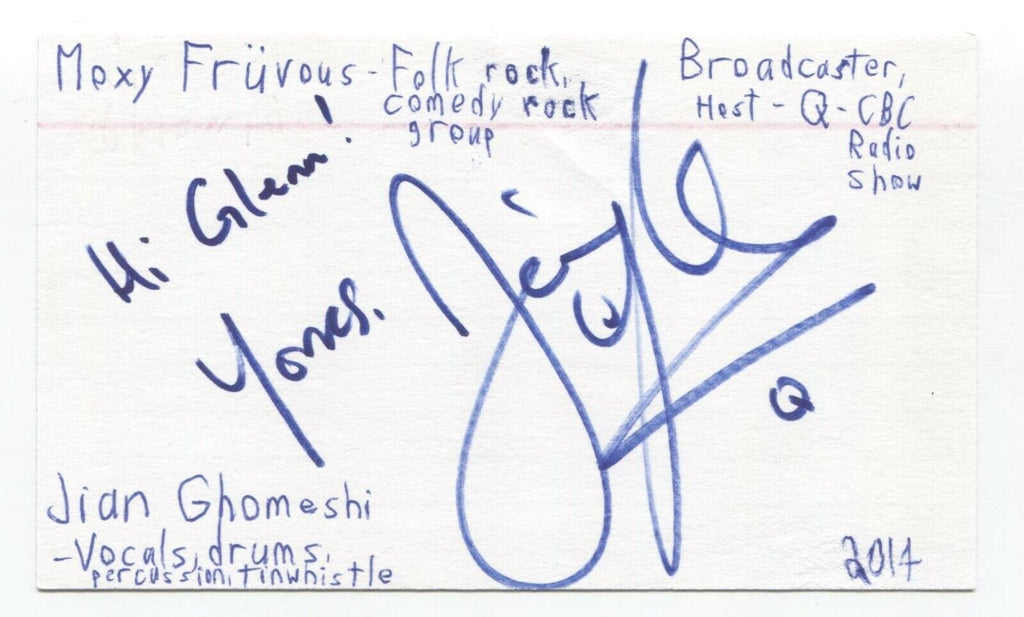 Moxy Früvous - Folk rock,
comedy rock
group
Broadcaster,
Host - Q - CBC
Radio
Show
Hi Glenn!
Yours,
Jian
Q
Jian Ghomeshi
- Vocals, drums,
percussion, tinwhistle
2014